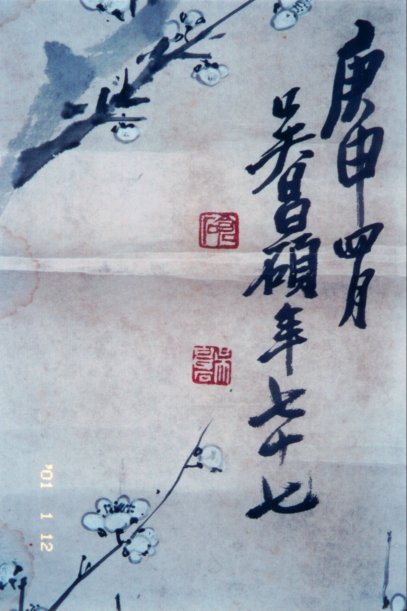 庚申四月
吳昌碩年七十七
'01 1 12